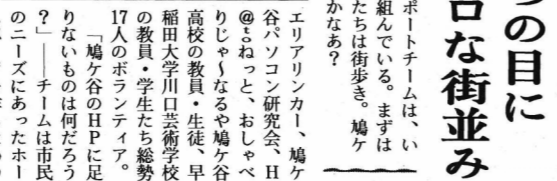 の目に
ロな街並み
ポートチームは、い
組んでいる。まずは
たちは街歩き。鳩ケ
かなあ?
エリアリンカー、鳩ケ
谷パソコン研究会、H
@ちねっと、おしゃべ
りじゃ~なるや鳩ケ谷
高校の教員・生徒、早
稲田大学川口芸術学校
の教員・学生たち総勢
17人のボランティア。
「鳩ケ谷のHPに足
りないものは何だろう
?」――チームは市民
のニーズにあったホー